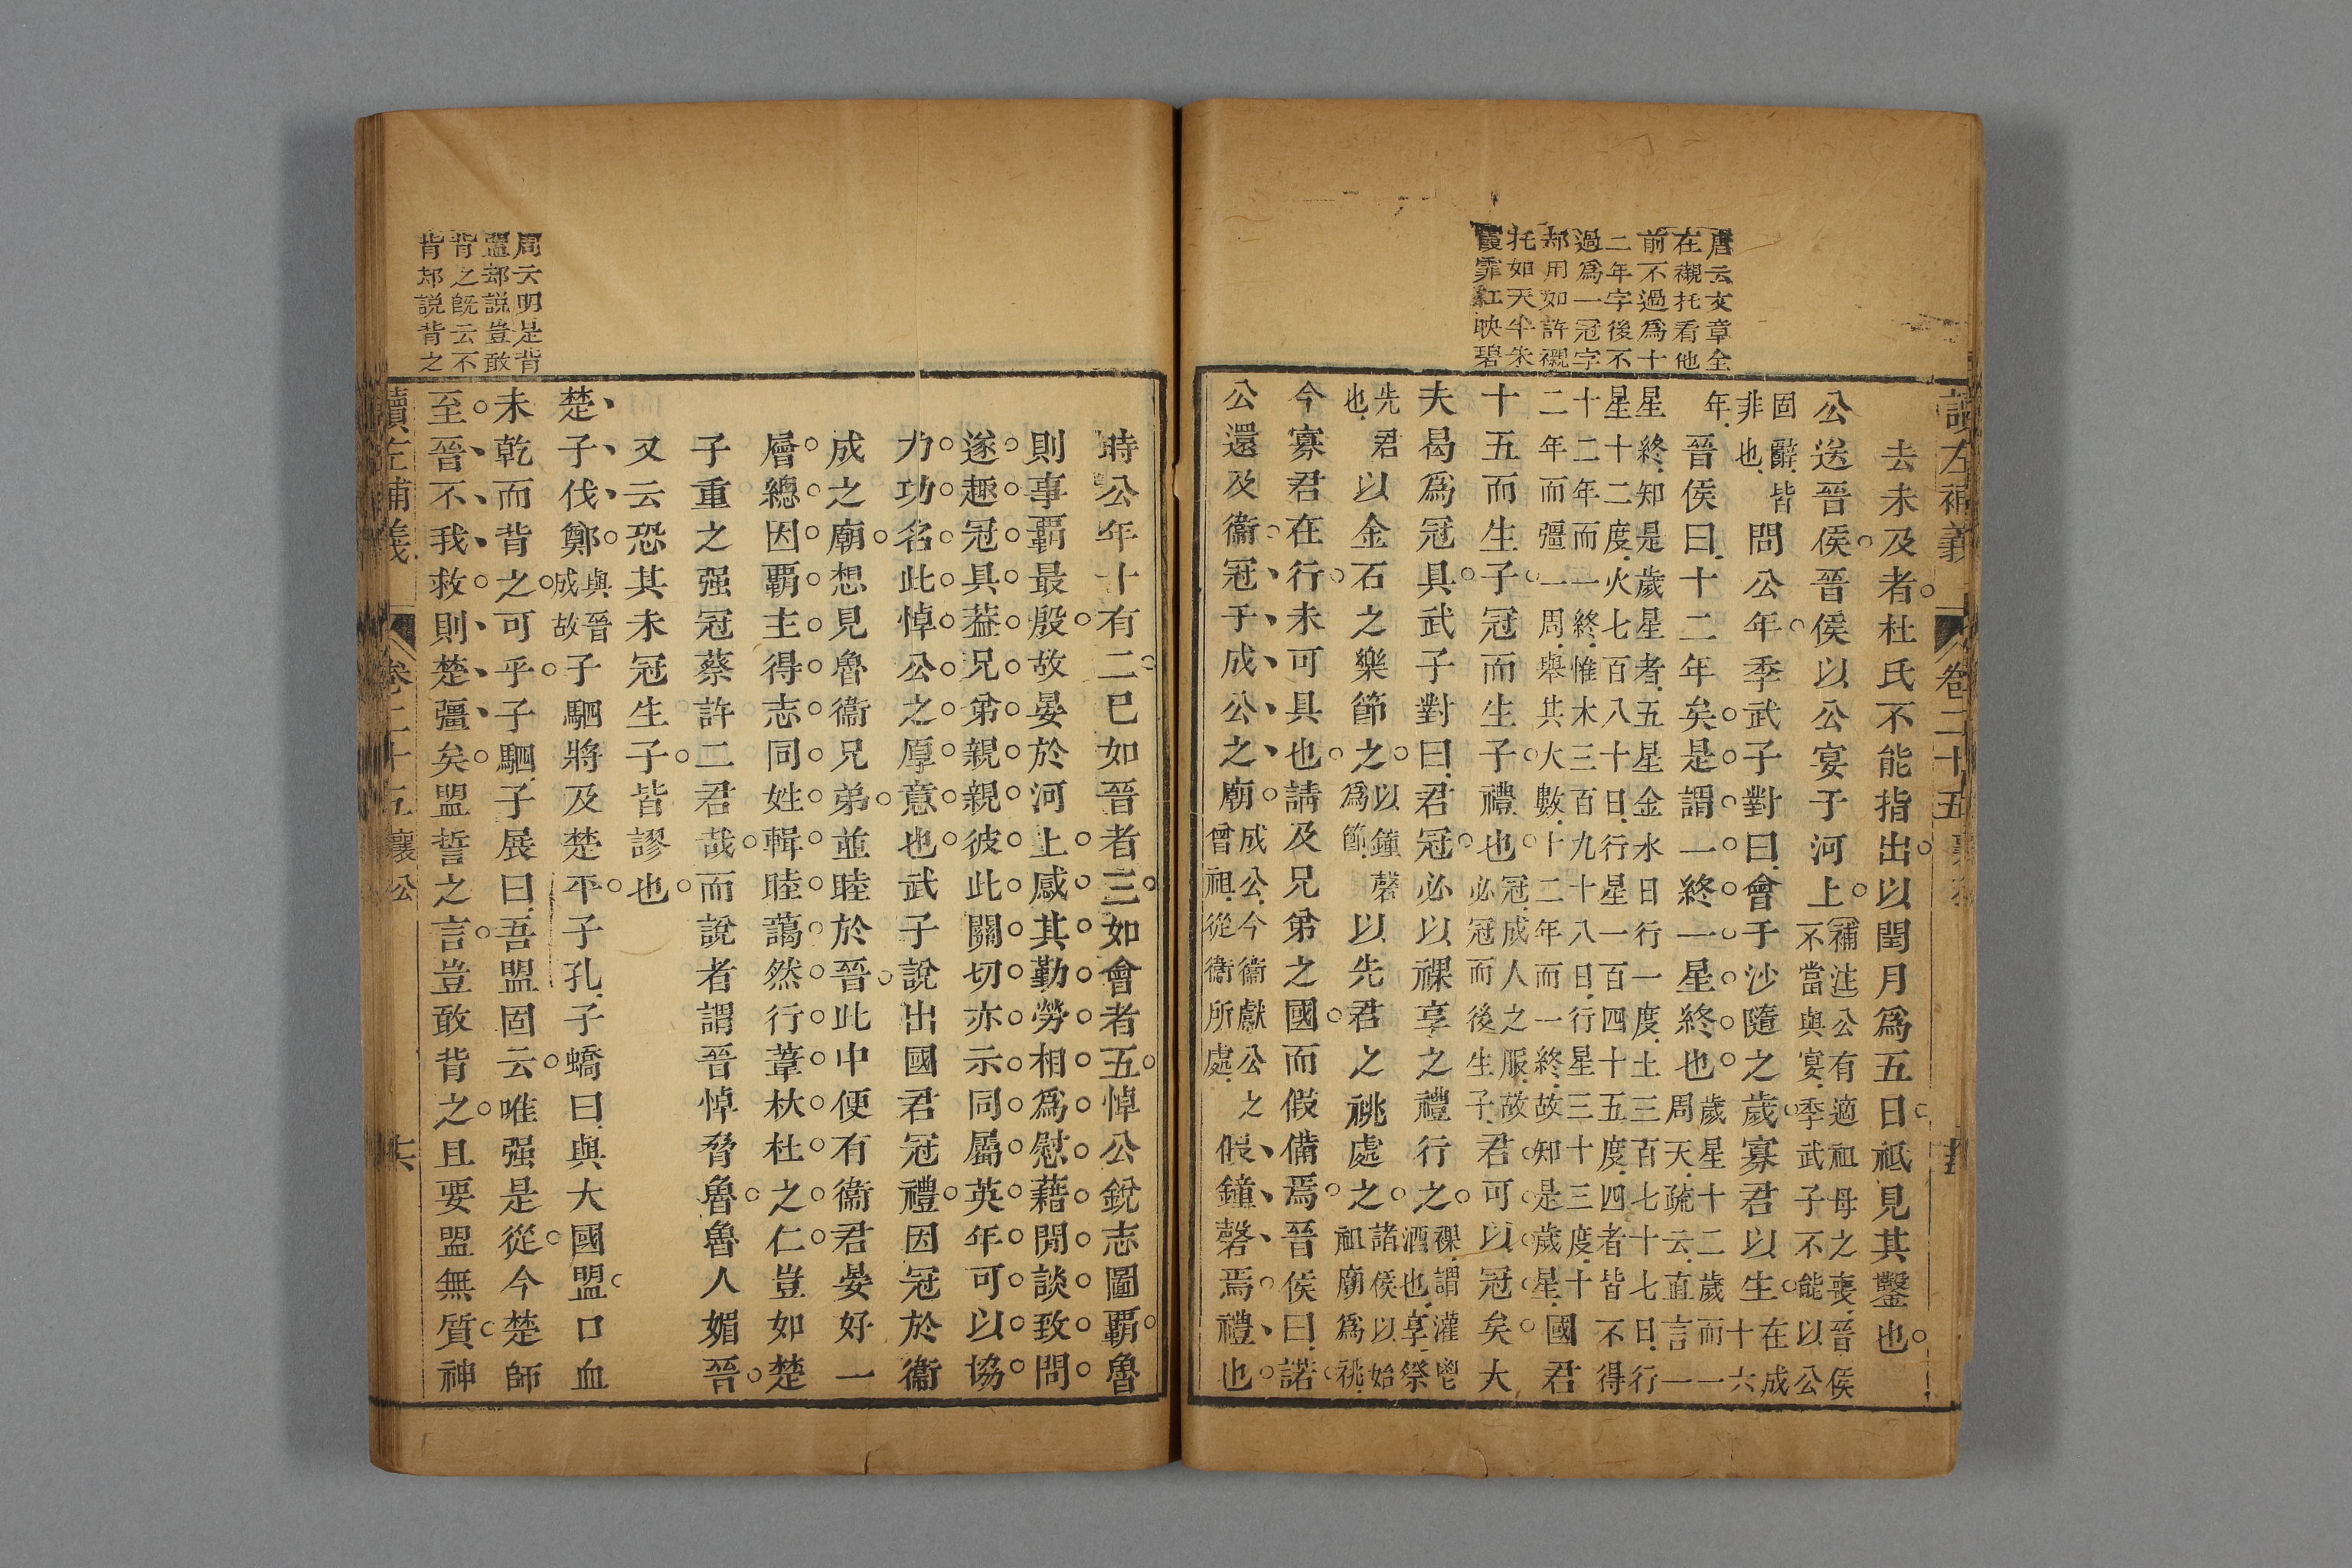 讀左補義　卷二十五
唐云文章全
在襯托看他
前不過爲十
二年字後不
過爲一冠字
却用如許襯
托如天半朱
霞霏紅映碧
去未及者杜氏不能指出以閏月爲五日祗見其鑿也
公送晉侯晉侯以公宴于河上補注公有適祖母之喪晉侯不當與宴季武子不能以公
固辭皆非也問公年季武子對曰會于沙隨之歲寡君以生在成十六
年晉侯曰十二年矣是謂一終一星終也歲星十二歲而一周天疏云直言一
星終知是歲星者五星金水日行一度土三百七十七日行星十二度火七百八十日行星一百四十五度四者皆不得
十二年而一終惟木三百九十八日行星三十三度十二年而彊一周舉其大數十二年而一終故知是歲星國君
十五而生子冠而生子禮也冠成人之服故必冠而後生子君可以冠矣大
夫曷爲冠具武子對曰君冠必以祼享之禮行之祼謂灌鬯酒也享祭
先君也以金石之樂節之以鐘磬爲節以先君之祧處之諸侯以始祖廟爲祧
今寡君在行未可具也請及兄弟之國而假備焉晉侯曰諾
公還及衞冠于成公之廟成公今衞獻公之曾祖從衞所處假鐘磬焉禮也
時公年十有二已如晉者三如會者五悼公銳志圖霸魯
則事霸最殷故晏於河上感其勤勞相爲慰藉閒談致問
遂趣冠具葢兄弟親親彼此關切亦示同屬英年可以協
力功名此悼公之厚意也武子說出國君冠禮因冠於衞
成之廟想見魯衞兄弟並睦於晉此中便有衞君晏好一
層總因霸主得志同姓輯睦藹然行葦杕杜之仁豈如楚
子重之强冠蔡許二君哉而說者謂晉悼脅魯魯人媚晉
又云恐其未冠生子皆謬也
楚子伐鄭與晉成故子駟將及楚平子孔子蟜曰與大國盟口血
未乾而背之可乎子駟子展曰吾盟固云唯强是從今楚師
至晉不我救則楚彊矣盟誓之言豈敢背之且要盟無質神
周云明是背
盟却說豈敢
背之旣云不
背却說背之
讀左補義　卷二十五　襄公